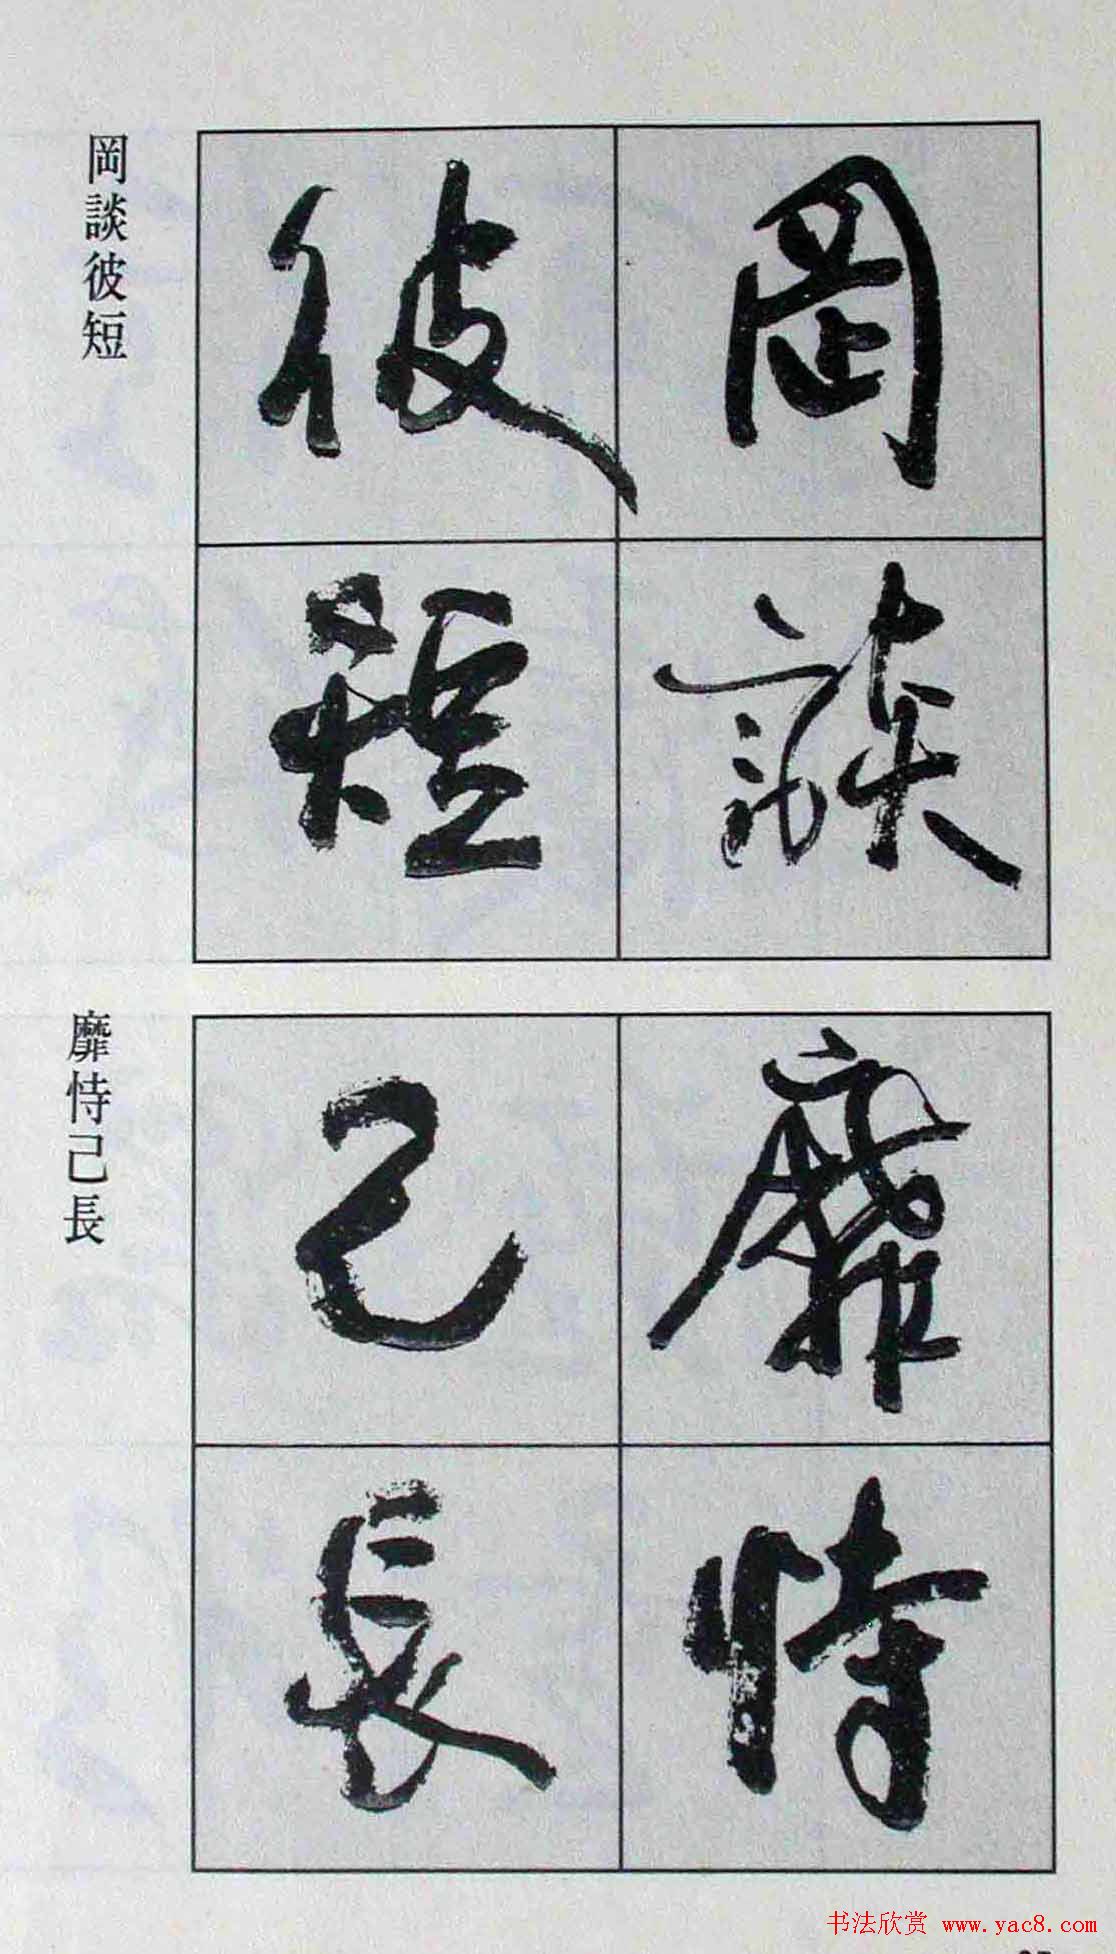 岡談
彼短
岡談彼短
靡恃
己長
靡恃己長
书法欣赏 www.yac8.com